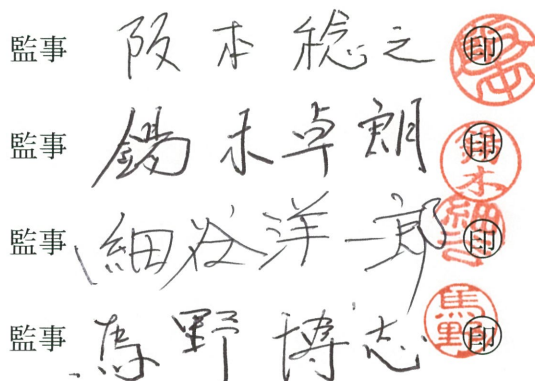 監事 阪本稔之 ㊞
監事 錫木卓朗 ㊞
監事 細谷洋一郎 ㊞
監事 馬野博志 ㊞